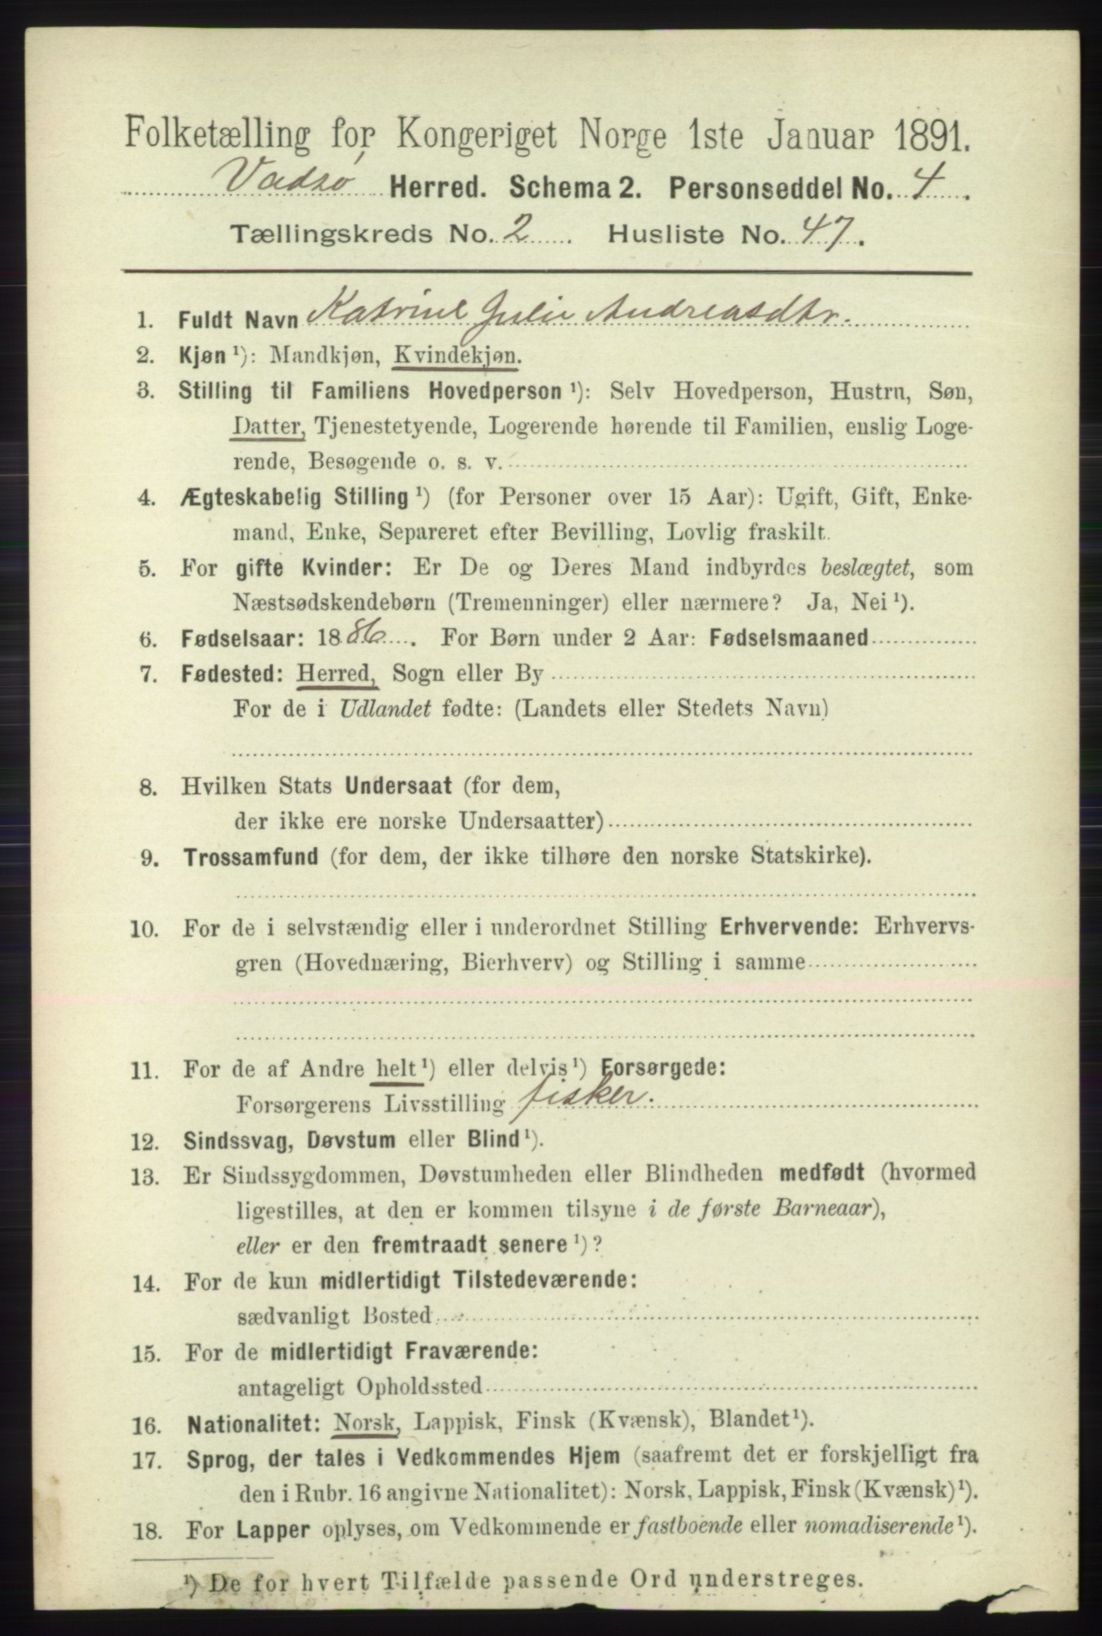 Folketælling for Kongeriget Norge 1ste Januar 1891.
Vadsø Herred. Schema 2. Personseddel No. 4.
Tællingskreds No. 2. Husliste No. 47.
1. Fuldt Navn Katrine Julie Andreasdtr.
2. Kjøn ¹): Mandkjøn, Kvindekjøn.
3. Stilling til Familiens Hovedperson ¹): Selv Hovedperson, Hustru, Søn,
Datter, Tjenestetyende, Logerende hørende til Familien, enslig Loge-
rende, Besøgende o. s. v.
4. Ægteskabelig Stilling ¹) (for Personer over 15 Aar): Ugift, Gift, Enke-
mand, Enke, Separeret efter Bevilling, Lovlig fraskilt.
5. For gifte Kvinder: Er De og Deres Mand indbyrdes beslægtet, som
Næstsødskendebørn (Tremenninger) eller nærmere? Ja, Nei ¹).
6. Fødselsaar: 1886. For Børn under 2 Aar: Fødselsmaaned
7. Fødested: Herred, Sogn eller By
For de i Udlandet fødte: (Landets eller Stedets Navn)
8. Hvilken Stats Undersaat (for dem,
der ikke ere norske Undersaatter)
9. Trossamfund (for dem, der ikke tilhøre den norske Statskirke).
10. For de i selvstændig eller i underordnet Stilling Erhvervende: Erhvervs-
gren (Hovednæring, Bierhverv) og Stilling i samme
11. For de af Andre helt ¹) eller delvis ¹) Forsørgede:
Forsørgerens Livsstilling fisker.
12. Sindssvag, Døvstum eller Blind ¹).
13. Er Sindssygdommen, Døvstumheden eller Blindheden medfødt (hvormed
ligestilles, at den er kommen tilsyne i de første Barneaar),
eller er den fremtraadt senere ¹)?
14. For de kun midlertidigt Tilstedeværende:
sædvanligt Bosted
15. For de midlertidigt Fraværende:
antageligt Opholdssted
16. Nationalitet: Norsk, Lappisk, Finsk (Kvænsk), Blandet ¹).
17. Sprog, der tales i Vedkommendes Hjem (saafremt det er forskjelligt fra
den i Rubr. 16 angivne Nationalitet): Norsk, Lappisk, Finsk (Kvænsk) ¹).
18. For Lapper oplyses, om Vedkommende er fastboende eller nomadiserende ¹).
¹) De for hvert Tilfælde passende Ord understreges.